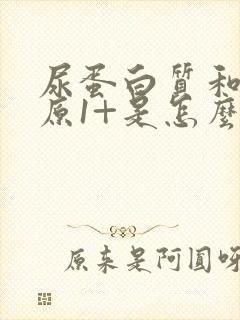 尿蛋白质和
原1+是怎麼
原来是阿圆呀